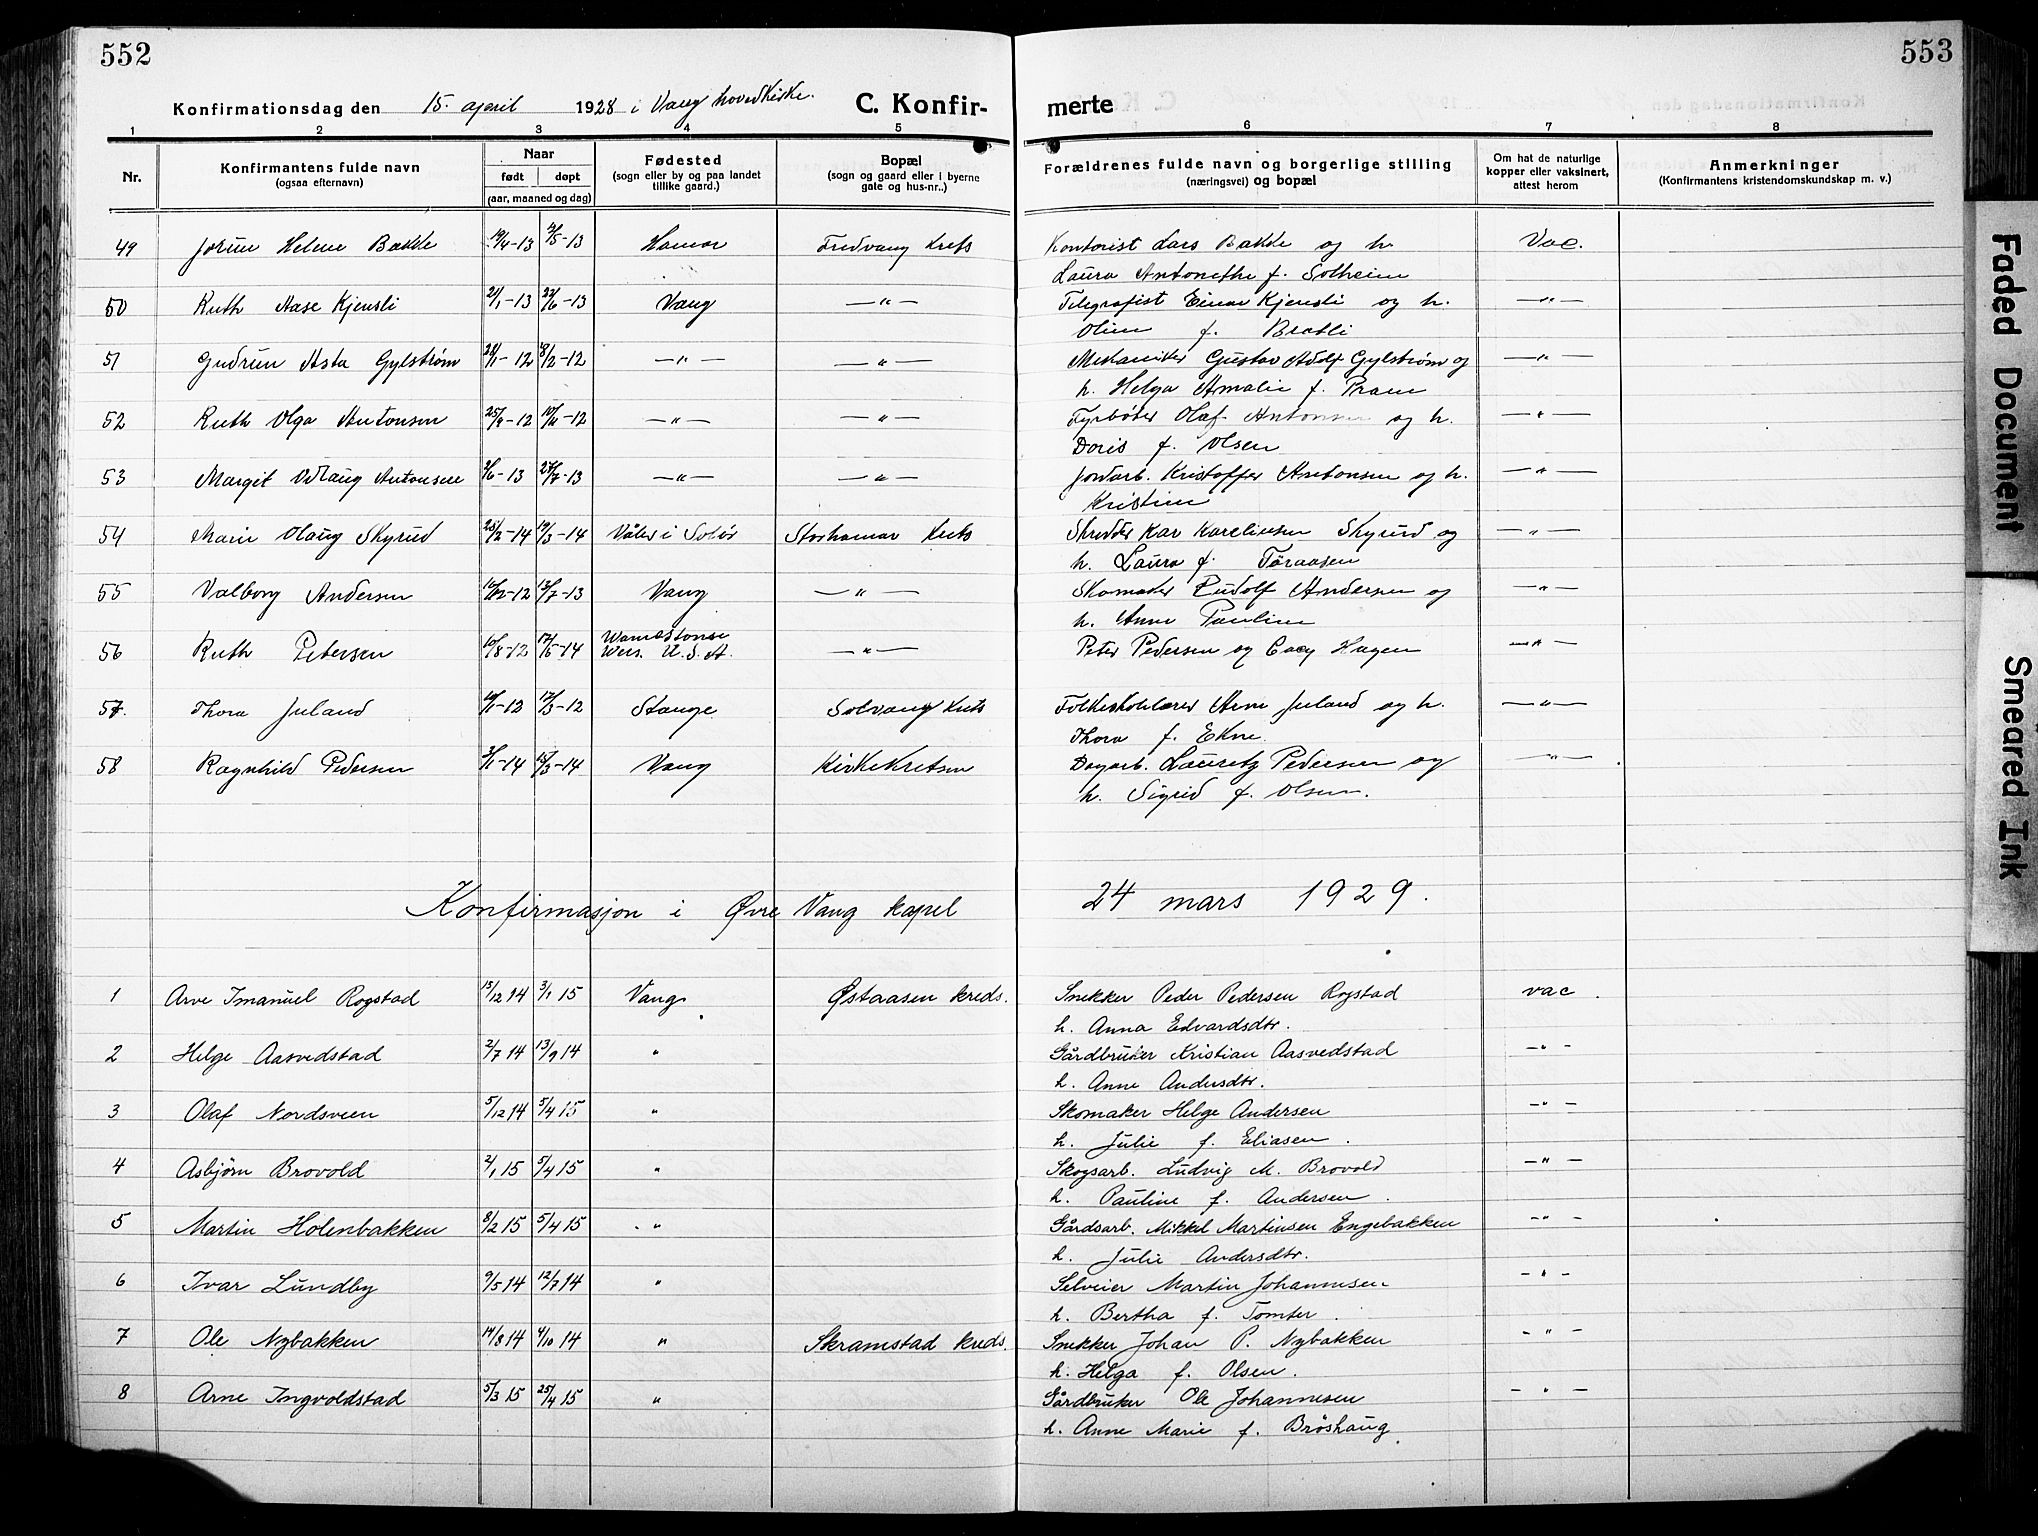 552
553
Konfirmationsdag den 15. april 1928 i Vang hovedkirke. C. Konfir-
merte
1 2 3 4 5 6 7 8
Nr. Konfirmantens fulde navn (ogsaa efternavn) Naar født døpt (aar, maaned og dag) Fødested (sogn eller by og paa landet tillike gaard.) Bopæl (sogn og gaard eller i byerne gate og hus-nr..) Forældrenes fulde navn og borgerlige stilling (næringsvei) og bopæl Om hat de naturlige kopper eller vaksinert, attest herom Anmerkninger (Konfirmantens kristendomskundskap m. v.)
49 Jorun Helene Bakke 19/4-13 -13 Hamar Fredvang Krets Kontorist Lars Bakke og h. Vac.
Laura Antonethe f. Solheim
50 Ruth Aase Kjensli 21/1-13 22/6-13 Vang -"- Telegrafist Einar Kjensli og h. -"-
Oline f. Bratli
51 Gudrun Asta Gylstrøm 28/1-12 18/2-12 -"- -"- Mekaniker Gustav Adolf Gylstrøm og -"-
h. Helga Amalie f. Pram
52 Ruth Olga Antonsen 25/9-12 10/11-12 -"- -"- Fyrbøter Olaf Antonsen og h. -"-
Doris f. Olsen
53 Margit Odlaug Antonsen 2/6-13 27/7-13 -"- -"- Jordarb. Kristoffer Antonsen og h. -"-
Kristine
54 Marie Olaug Skyrud 25/2-14 19/3-14 Våler i Solør Storhamar Krets Skredder Kar Kareliusen Skyrud og -"-
h. Laura f. Toraasen
55 Valborg Andersen 16/12-12 13/7-13 Vang -"- Skomaker Rudolf Andersen og -"-
h. Anne Pauline
56 Ruth Petersen 10/8-12 17/5-14 Wis. U.S.A. -"- Peter Pedersen og Hagen -"-
57. Thora Juland 10/1-12 17/3-12 Stange Solvang Krets Folkeskolelærer Arne Juland og h. -"-
Thora f. Ekne.
58 Ragnhild Pedersen 3/1-14 15/3-14 Vang Kirkekretsen Dagarb. Lauretz Pedersen og -"-
h. Sigrid f. Olsen.
Konfirmasjon i Øvre Vang kapel 24 mars 1929.
1 Arve Imanuel Rogstad 13/12 14 3/1 15 Vang. Østaasen kreds. Snekker Peder Pedersen Rogstad vac.
h. Anna Edvardsdtr.
2 Helge Aasvedstad 2/7 14 13/9 14 " Gårdbruker Kristian Aasvedstad -"-
h. Anne Andersdtr.
3 Olaf Nordsveen 5/12 14 5/4 15 " Skomaker Helge Andersen -"-
h. Julie f. Eliasen.
4 Asbjørn Brovold 2/1 15 5/4 15 " Skogsarb. Ludvig M. Brovold -"-
h. Pauline f. Andersen.
5 Martin Holenbakken 8/2 15 5/4 15 " Gårdsarb. Mikkel Martinsen Engebakken -"-
h. Julie Andersdtr.
6 Ivar Lundby 9/5 14 12/7 14 " Selveier Martin Johannesen -"-
h. Bertha f. Tomter.
7 Ole Nybakken 14/8 14 4/10 14 " Skramstad kreds. Snekker Johan P. Nybakken -"-
h. Helga f. Olsen.
8 Arne Ingvoldstad 5/3 15 25/4 15 " Gårdbruker Ole Johannesen -"-
h. Anne Marie f. Brøshaug.
Faded Document
Smeared Ink